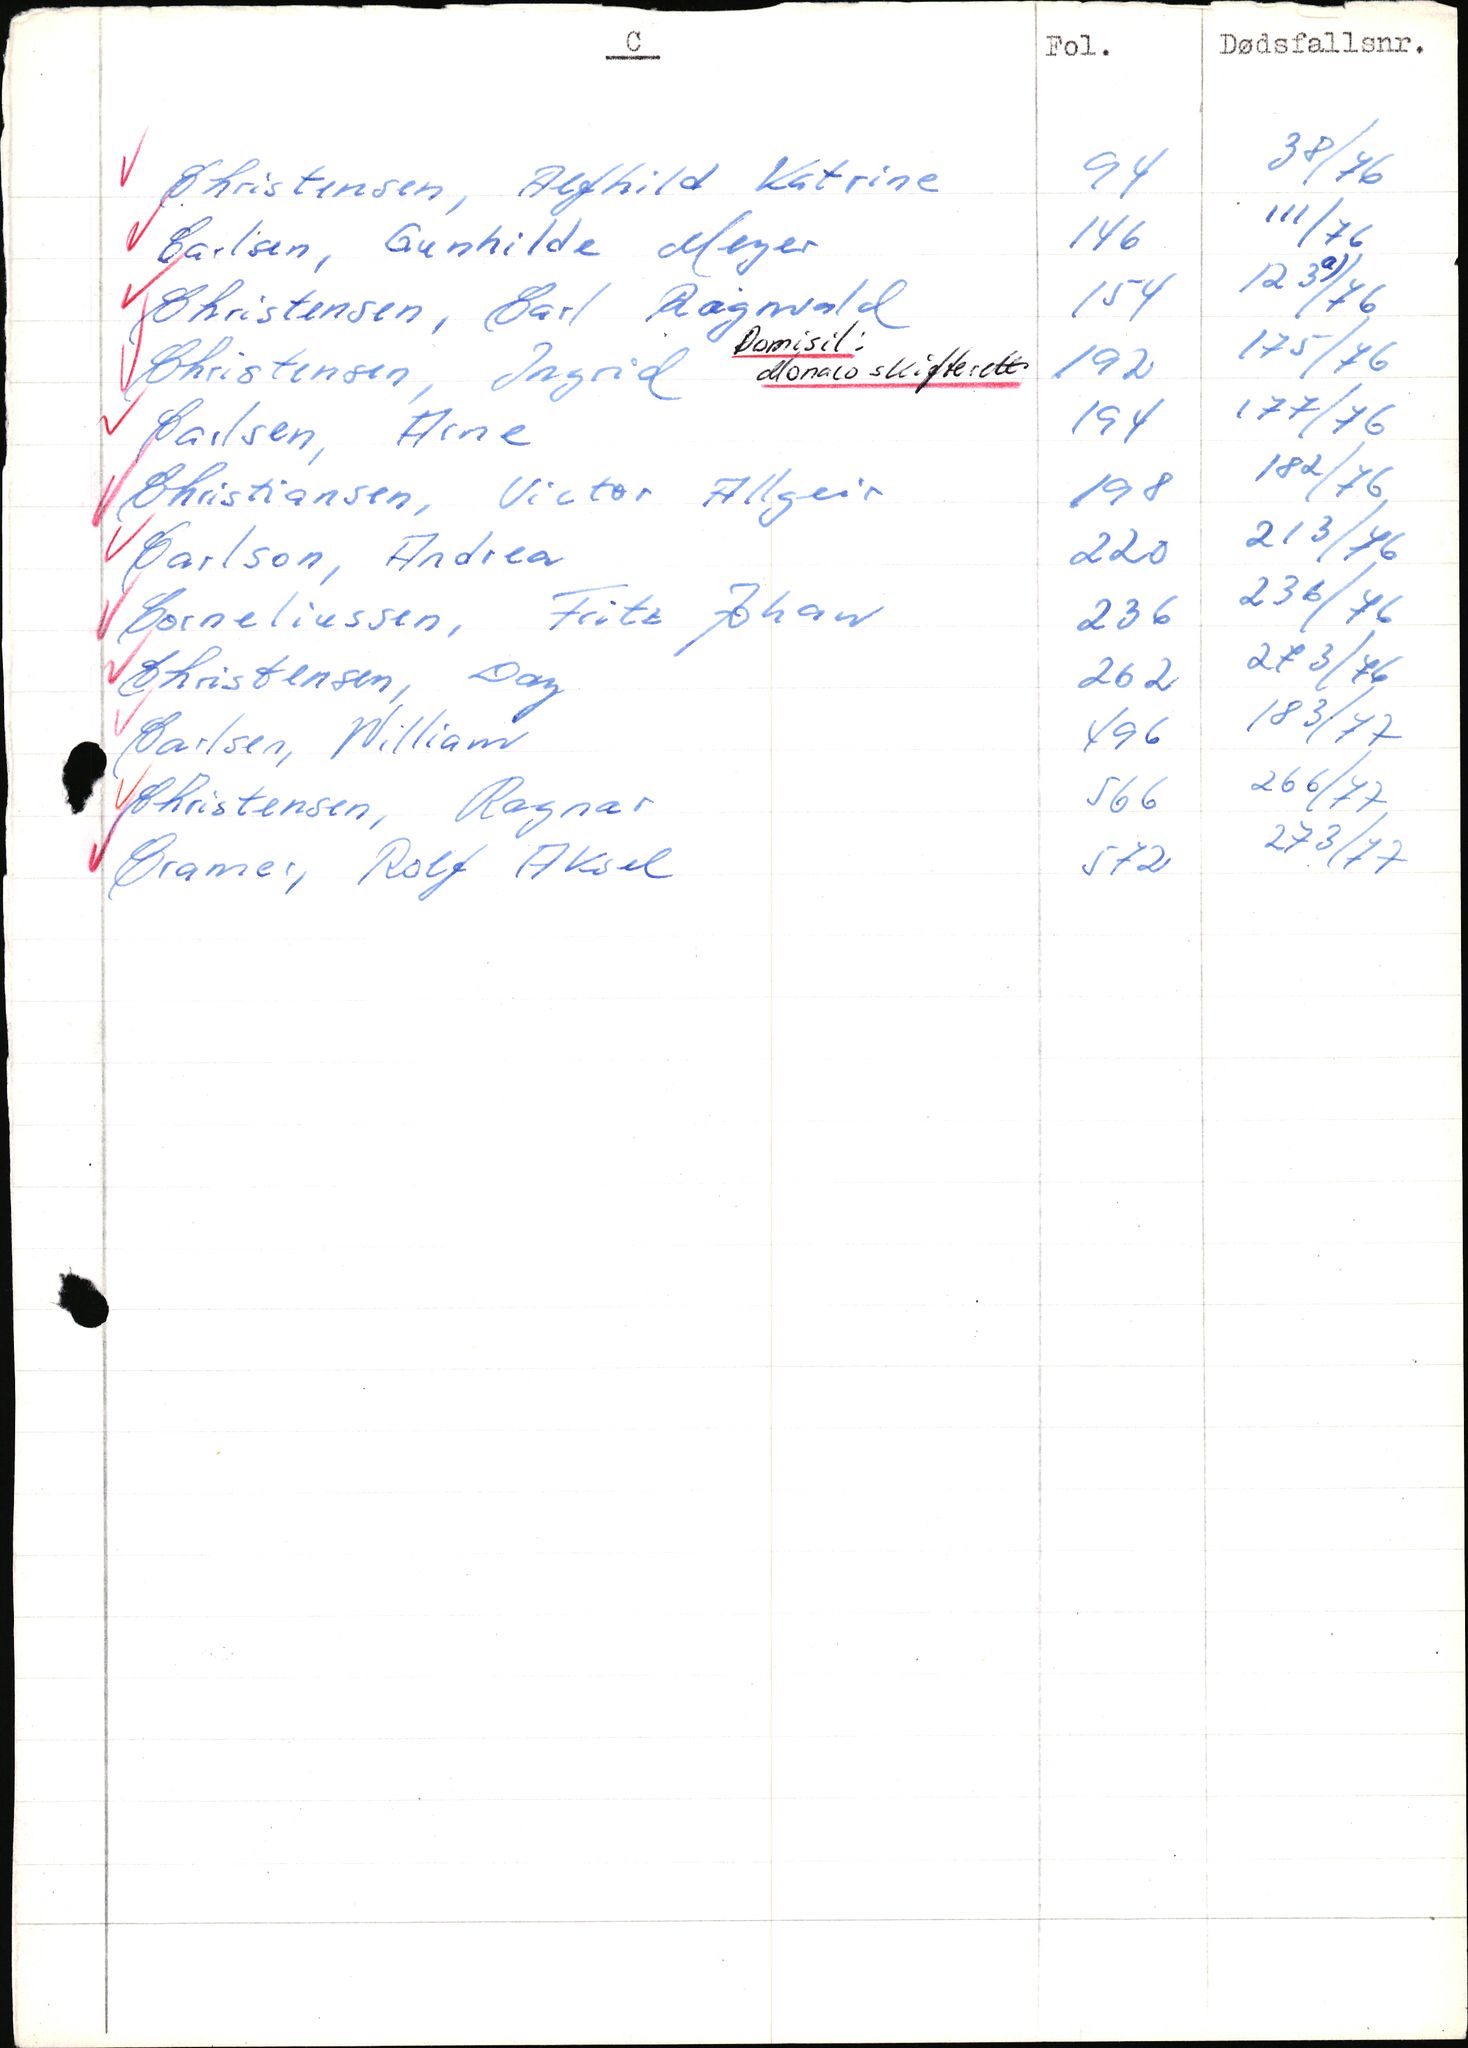 C Fol. Dødsfallsnr.
Christensen, Alfhild Katrine 94 38/76
Carlsen, Gunhilde Meyer 146 111/76
Christensen, Carl Ragnvald 154 123a)/76
Domisil:
Christensen, Ingrid Monaco skifterett 192 175/76
Carlsen, Arne 194 177/76
Christiansen, Victor Allgeir 198 182/76
Carlson, Andrea 220 213/76
Corneliussen, Fritz Johan 236 236/76
Christensen, Dag 262 273/76
Carlsen, William 496 183/77
Christensen, Ragnar 566 266/77
Cramer, Rolf Aksel 572 273/77